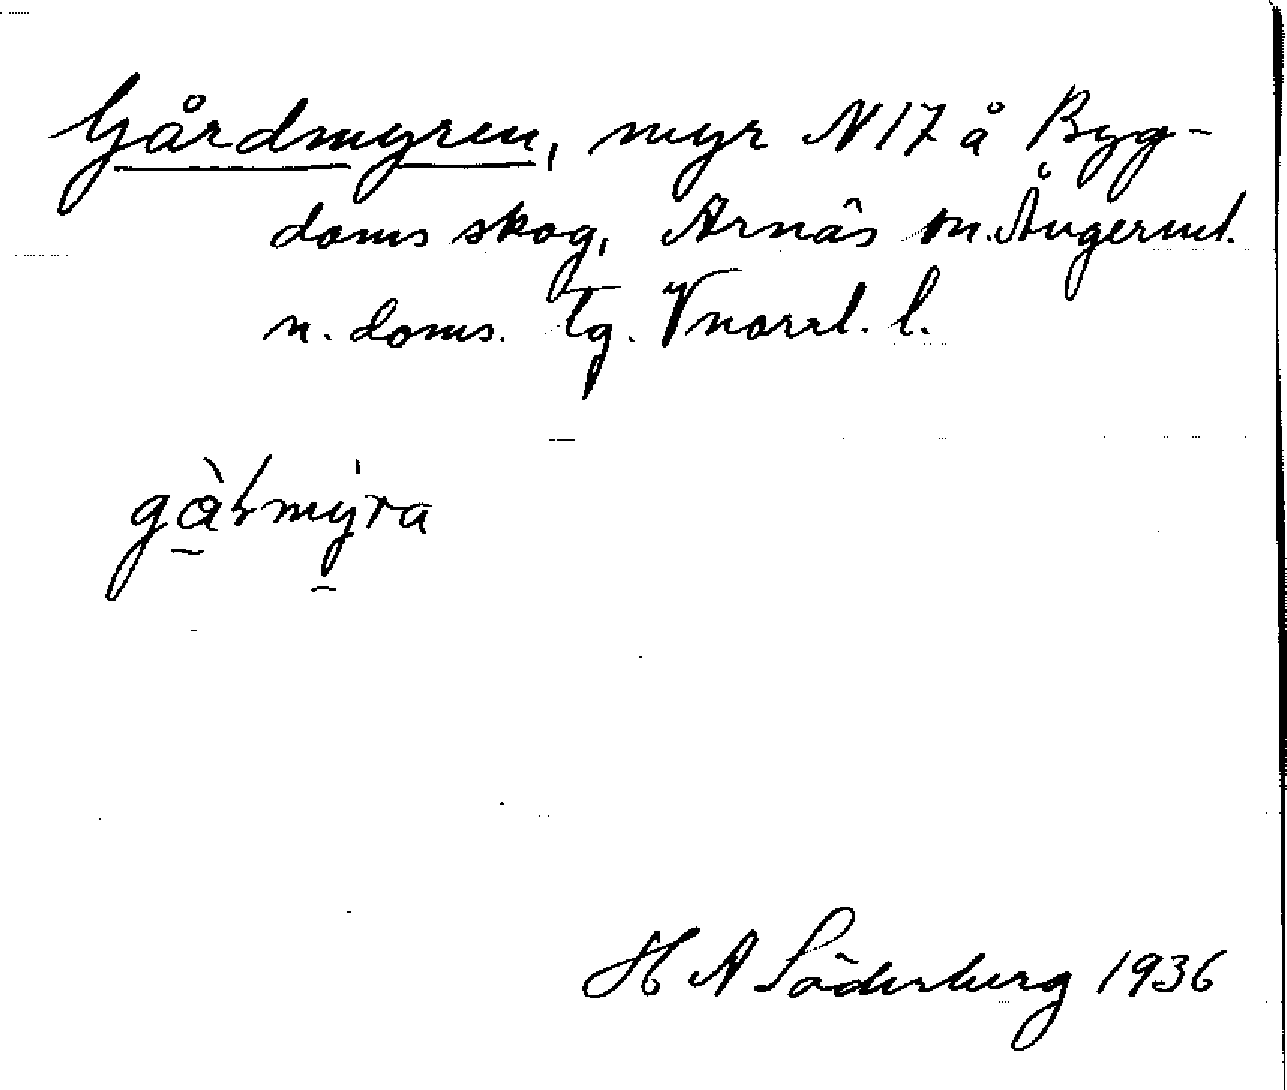 Gårdmyren, myr N17 å Byg-
doms skog, Arnäs sn. Ångerml.
n. doms. tg. Vnorrl. l.
gàɫmy̍ra
H A Söderberg 1936